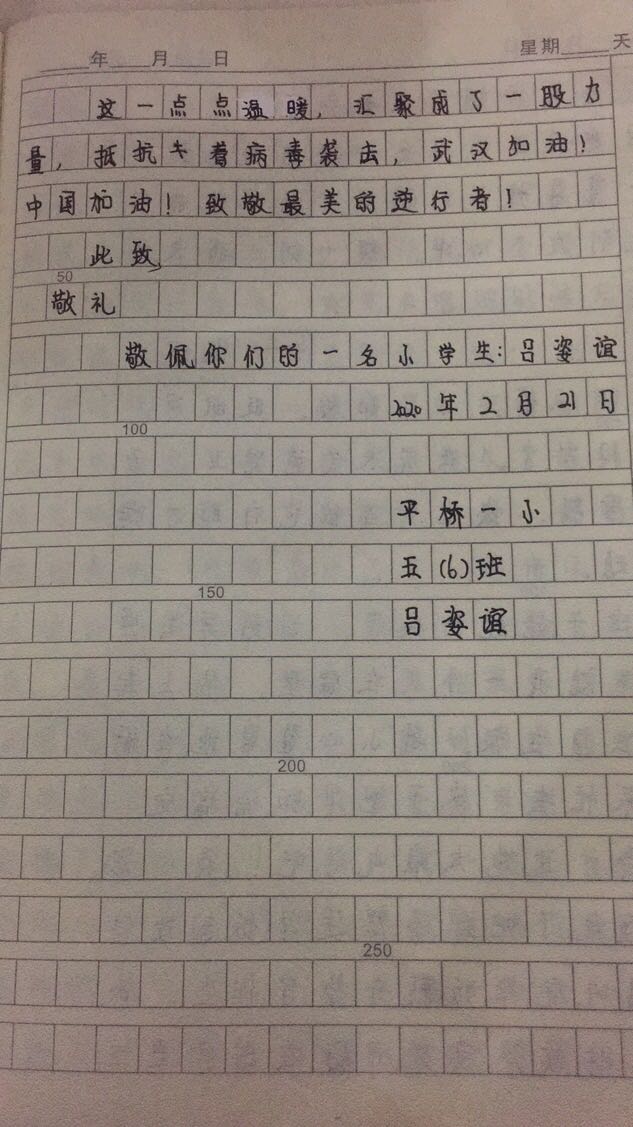 年 月 日 星期 天
这一点点温暖，汇聚成了一股力
量，抵抗着病毒袭击，武汉加油！
中国加油！致敬最美的逆行者！
此致
50
敬礼
敬佩你们的一名小学生：吕姿谊
2020年2月21日
100
平桥一小
五（6）班
150
吕姿谊
200
250